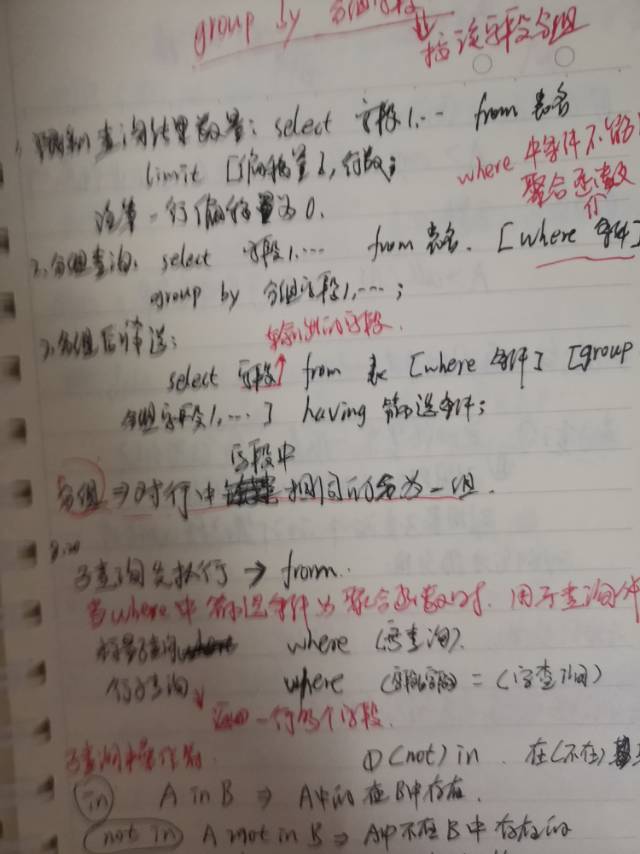 group by 分组字段
按该字段分组
1.限制查询结果数量: select 字段1,… from 表名
limit [偏移量], 行数;
where 中条件不能
聚合函数
注第一行偏移量为0.
2.分组查询: select 字段1,… from 表名. [where 条件]
group by 分组字段1,…;
3.分组后筛选:
select 字段 from 表 [where 条件] [group
分组字段1,…] having 筛选条件;
字段中
分组 ⇒ 对行中 相同的分为一组.
子查询先执行 → from.
当where中筛选条件为聚合函数时. 用于查询
where (子查询).
行子查询 where (字段,字段) = (子查询)
一行多个字段.
子查询操作符 ①(not) in . 在(不在)
in A in B ⇒ A中的在B中存在.
not in A not in B ⇒ A中不在B中存在的